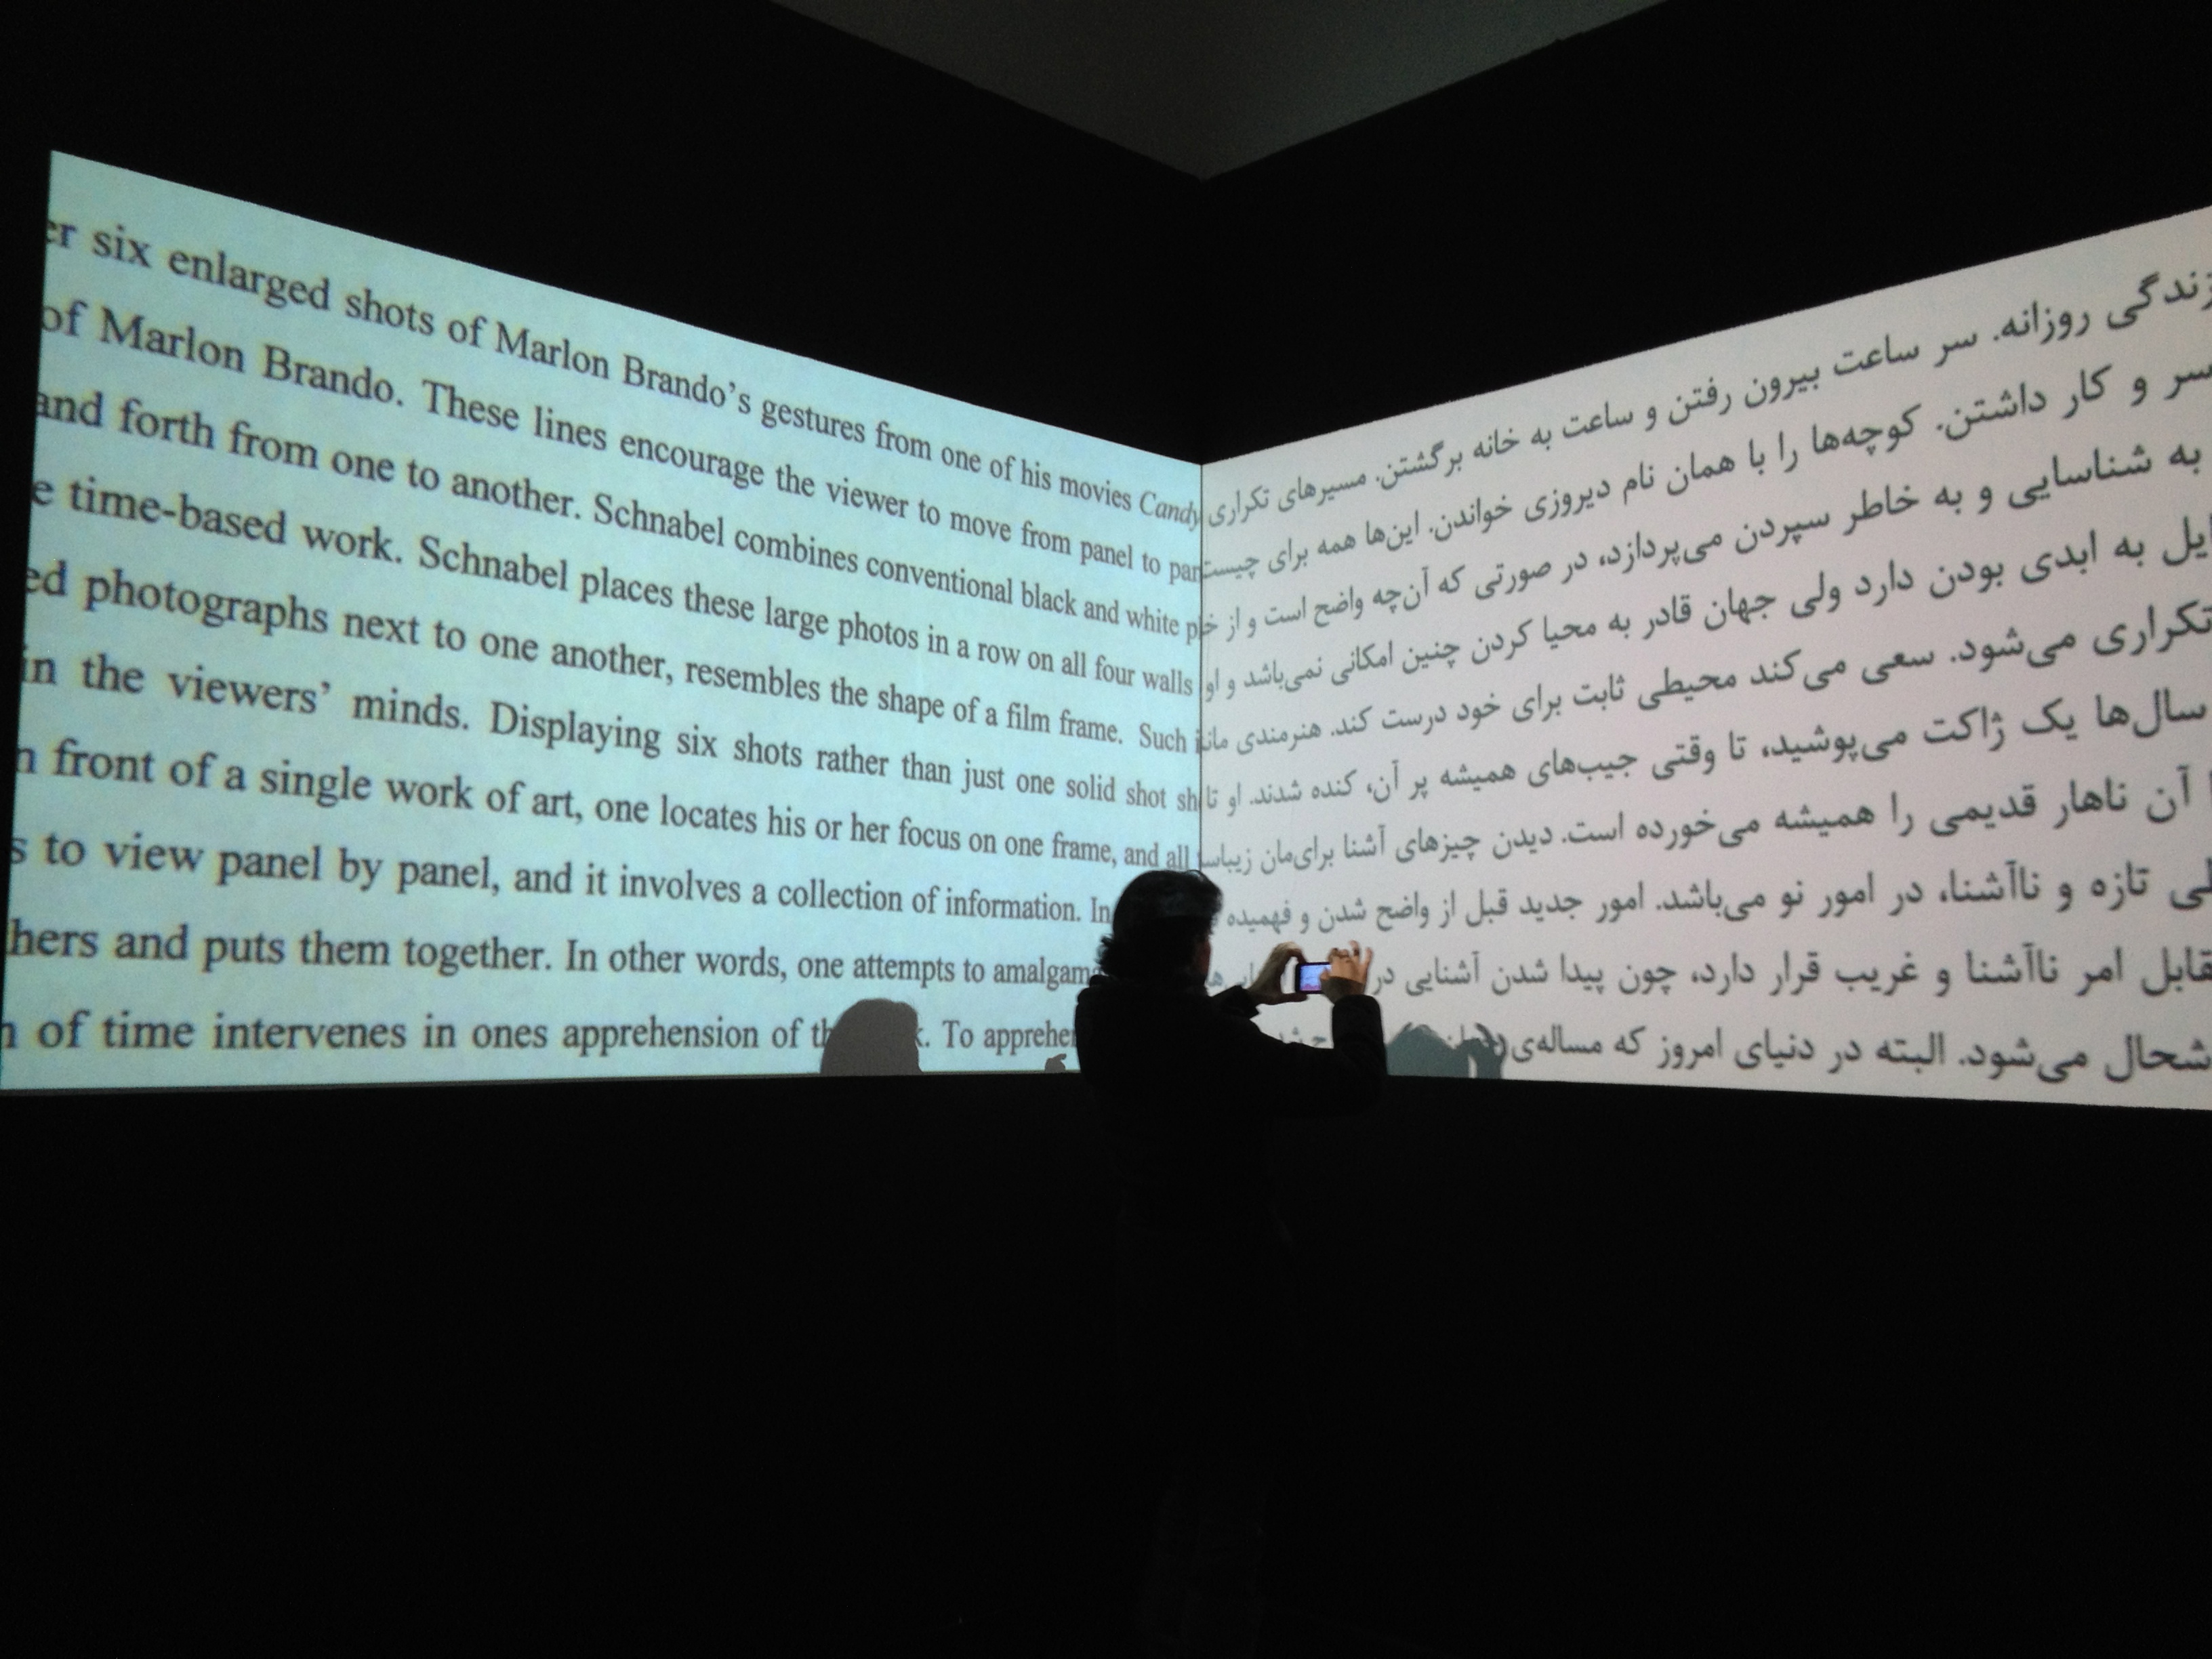 six enlarged shots of Marlon Brando's gestures from one of his movies Candy
of Marlon Brando. These lines encourage the viewer to move from panel to
and forth from one to another. Schnabel combines conventional black and white
time-based work. Schnabel places these large photos in a row on all four walls
photographs next to one another, resembles the shape of a film frame. Such
in the viewers' minds. Displaying six shots rather than just one solid shot
front of a single work of art, one locates his or her focus on one frame, and all
to view panel by panel, and it involves a collection of information. In
and puts them together. In other words, one attempts to
of time intervenes in ones apprehension of To
زندگی روزانه. سر ساعت بیرون رفتن و ساعت به خانه برگشتن. مسیرهای تکراری
سر و کار داشتن. کوچه‌ها را با همان نام دیروزی خواندن. این‌ها همه برای چیست
به شناسایی و به خاطر سپردن می‌پردازد، در صورتی که آن‌چه واضح است و از
به ابدی بودن دارد ولی جهان قادر به محیا کردن چنین امکانی نمی‌باشد و او
تکراری می‌شود. سعی می‌کند محیطی ثابت برای خود درست کند. هنرمندی
سال‌ها یک ژاکت می‌پوشید، تا وقتی جیب‌های همیشه پر آن، کنده شدند. او تا
آن ناهار قدیمی را همیشه می‌خورده است. دیدن چیزهای آشنا برای‌مان
تازه و ناآشنا، در امور نو می‌باشد. امور جدید قبل از واضح شدن و فهمیده
امر ناآشنا و غریب قرار دارد، چون پیدا شدن آشنایی در
می‌شود. البته در دنیای امروز که مساله‌ی